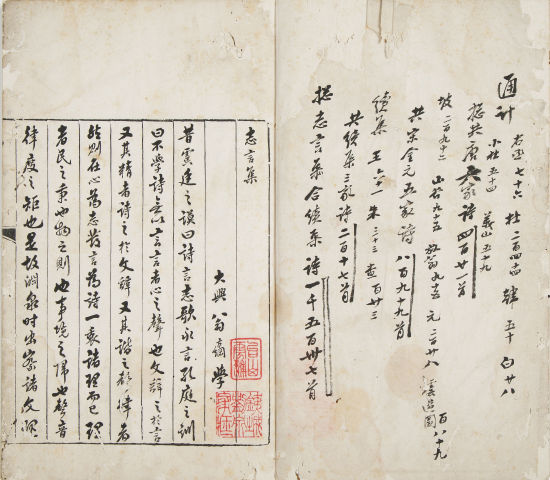 通计
右丞七十六 杜二百四十四 韩五十 白廿八
小杜五十四 义山五十九
揔共唐六家诗四百廿首
坡二百九十二 山谷九十五 放翁九十五 元二百廿八
百八十九
共宋金元五家诗八百九十九首
续集 王六十一 朱三十三 查百廿三
共续集三家诗二百十七首
揔志言集合续集诗一千五百卅七首
志言集
大興翁方綱學
昔虞廷之謨曰詩言志歌永言孔庭之訓
曰不學詩無以言言者心之聲也文辭之於言
又其精者詩之於文辭又其諧之聲律者
然則在心為志發言為詩一衷諸理而已理
者民之秉也物之則也事境之歸也聲音
律度之矩也是故淵泉時出察諸文理